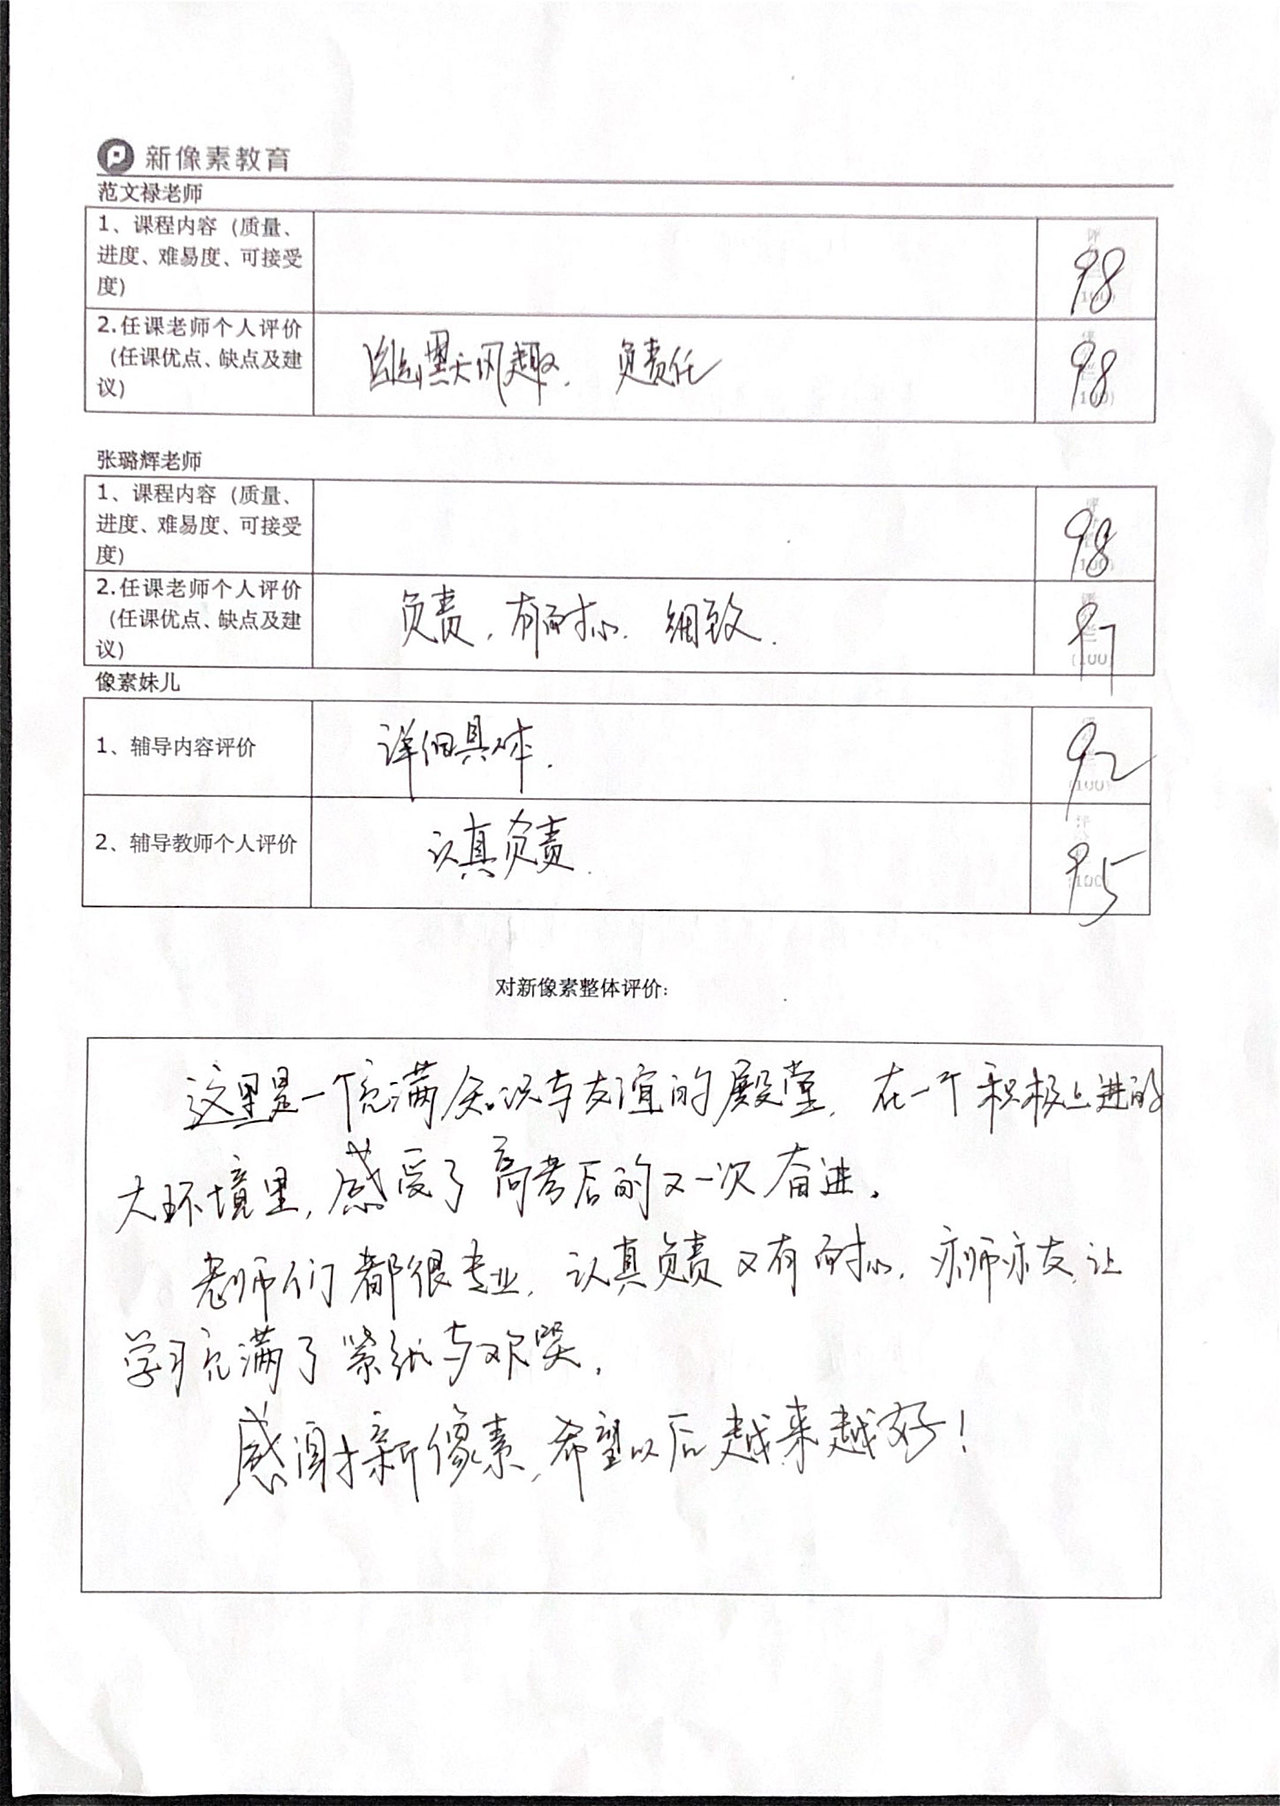 新像素教育
范文禄老师
1、课程内容（质量、
进度、难易度、可接受
度）
98
2.任课老师个人评价
（任课优点、缺点及建
议）
幽默风趣，负责任
98
张璐辉老师
1、课程内容（质量、
进度、难易度、可接受
度）
98
2.任课老师个人评价
（任课优点、缺点及建
议）
负责，有耐心，细致.
97
(100)
像素妹儿
1、辅导内容评价
详细具体.
92
(100)
2、辅导教师个人评价
认真负责.
95
(100)
对新像素整体评价：
这里是一个充满知识与友谊的殿堂，在一个积极上进的
大环境里，感受了高考后的又一次奋进。
老师们都很专业，认真负责又有耐心，亦师亦友，让
学习充满了紧张与欢笑。
感谢新像素，希望以后越来越好！